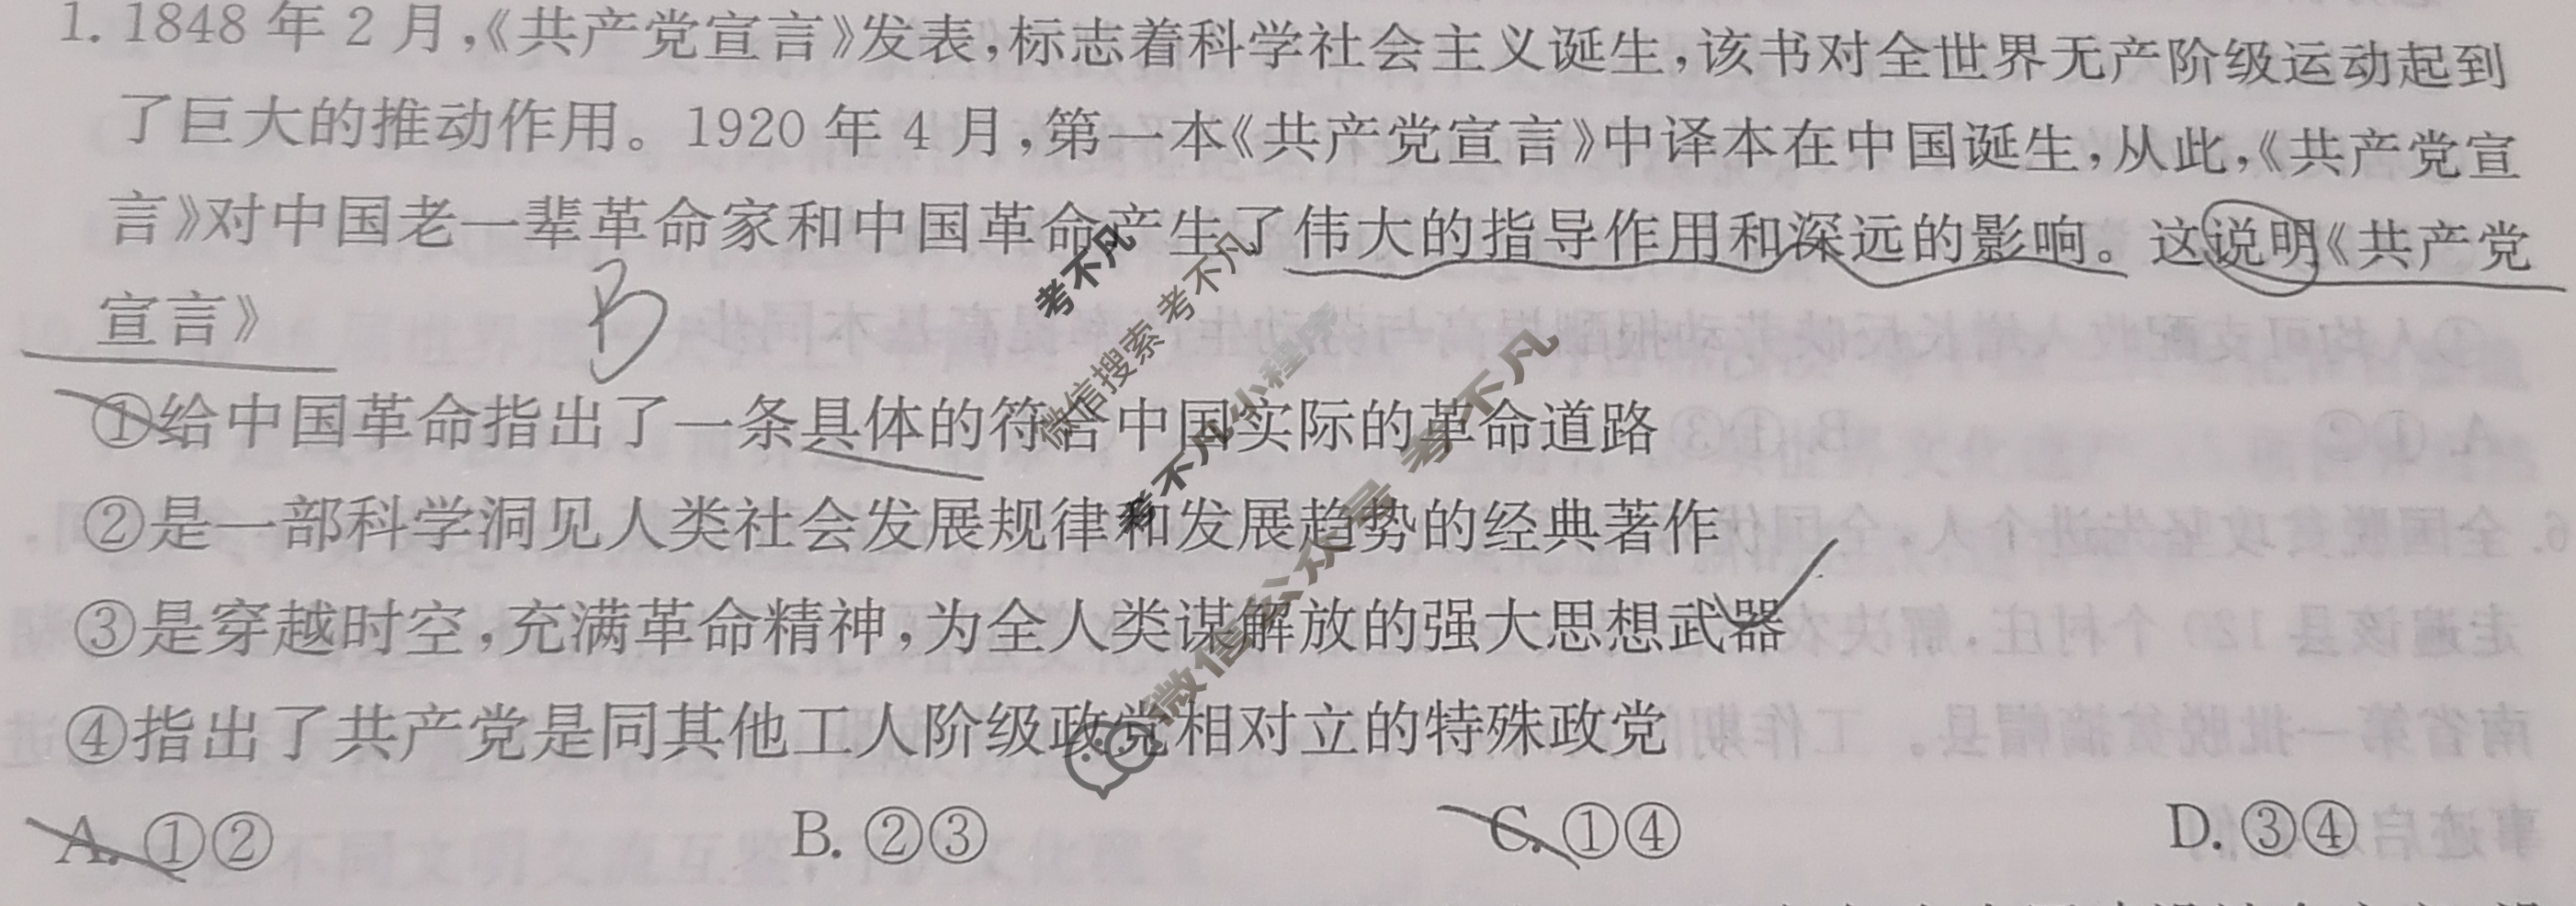 1. 1848 年 2 月，《共产党宣言》发表，标志着科学社会主义诞生，该书对全世界无产阶级运动起到
了巨大的推动作用。1920 年 4 月，第一本《共产党宣言》中译本在中国诞生，从此，《共产党宣
言》对中国老一辈革命家和中国革命产生了伟大的指导作用和深远的影响。这说明《共产党
宣言》
B
①给中国革命指出了一条具体的符合中国实际的革命道路
②是一部科学洞见人类社会发展规律和发展趋势的经典著作
③是穿越时空，充满革命精神，为全人类谋解放的强大思想武器
④指出了共产党是同其他工人阶级政党相对立的特殊政党
A. ①② B. ②③ C. ①④ D. ③④
考不凡
微信搜索 考不凡
考不凡小程序
微信公众号 考不凡